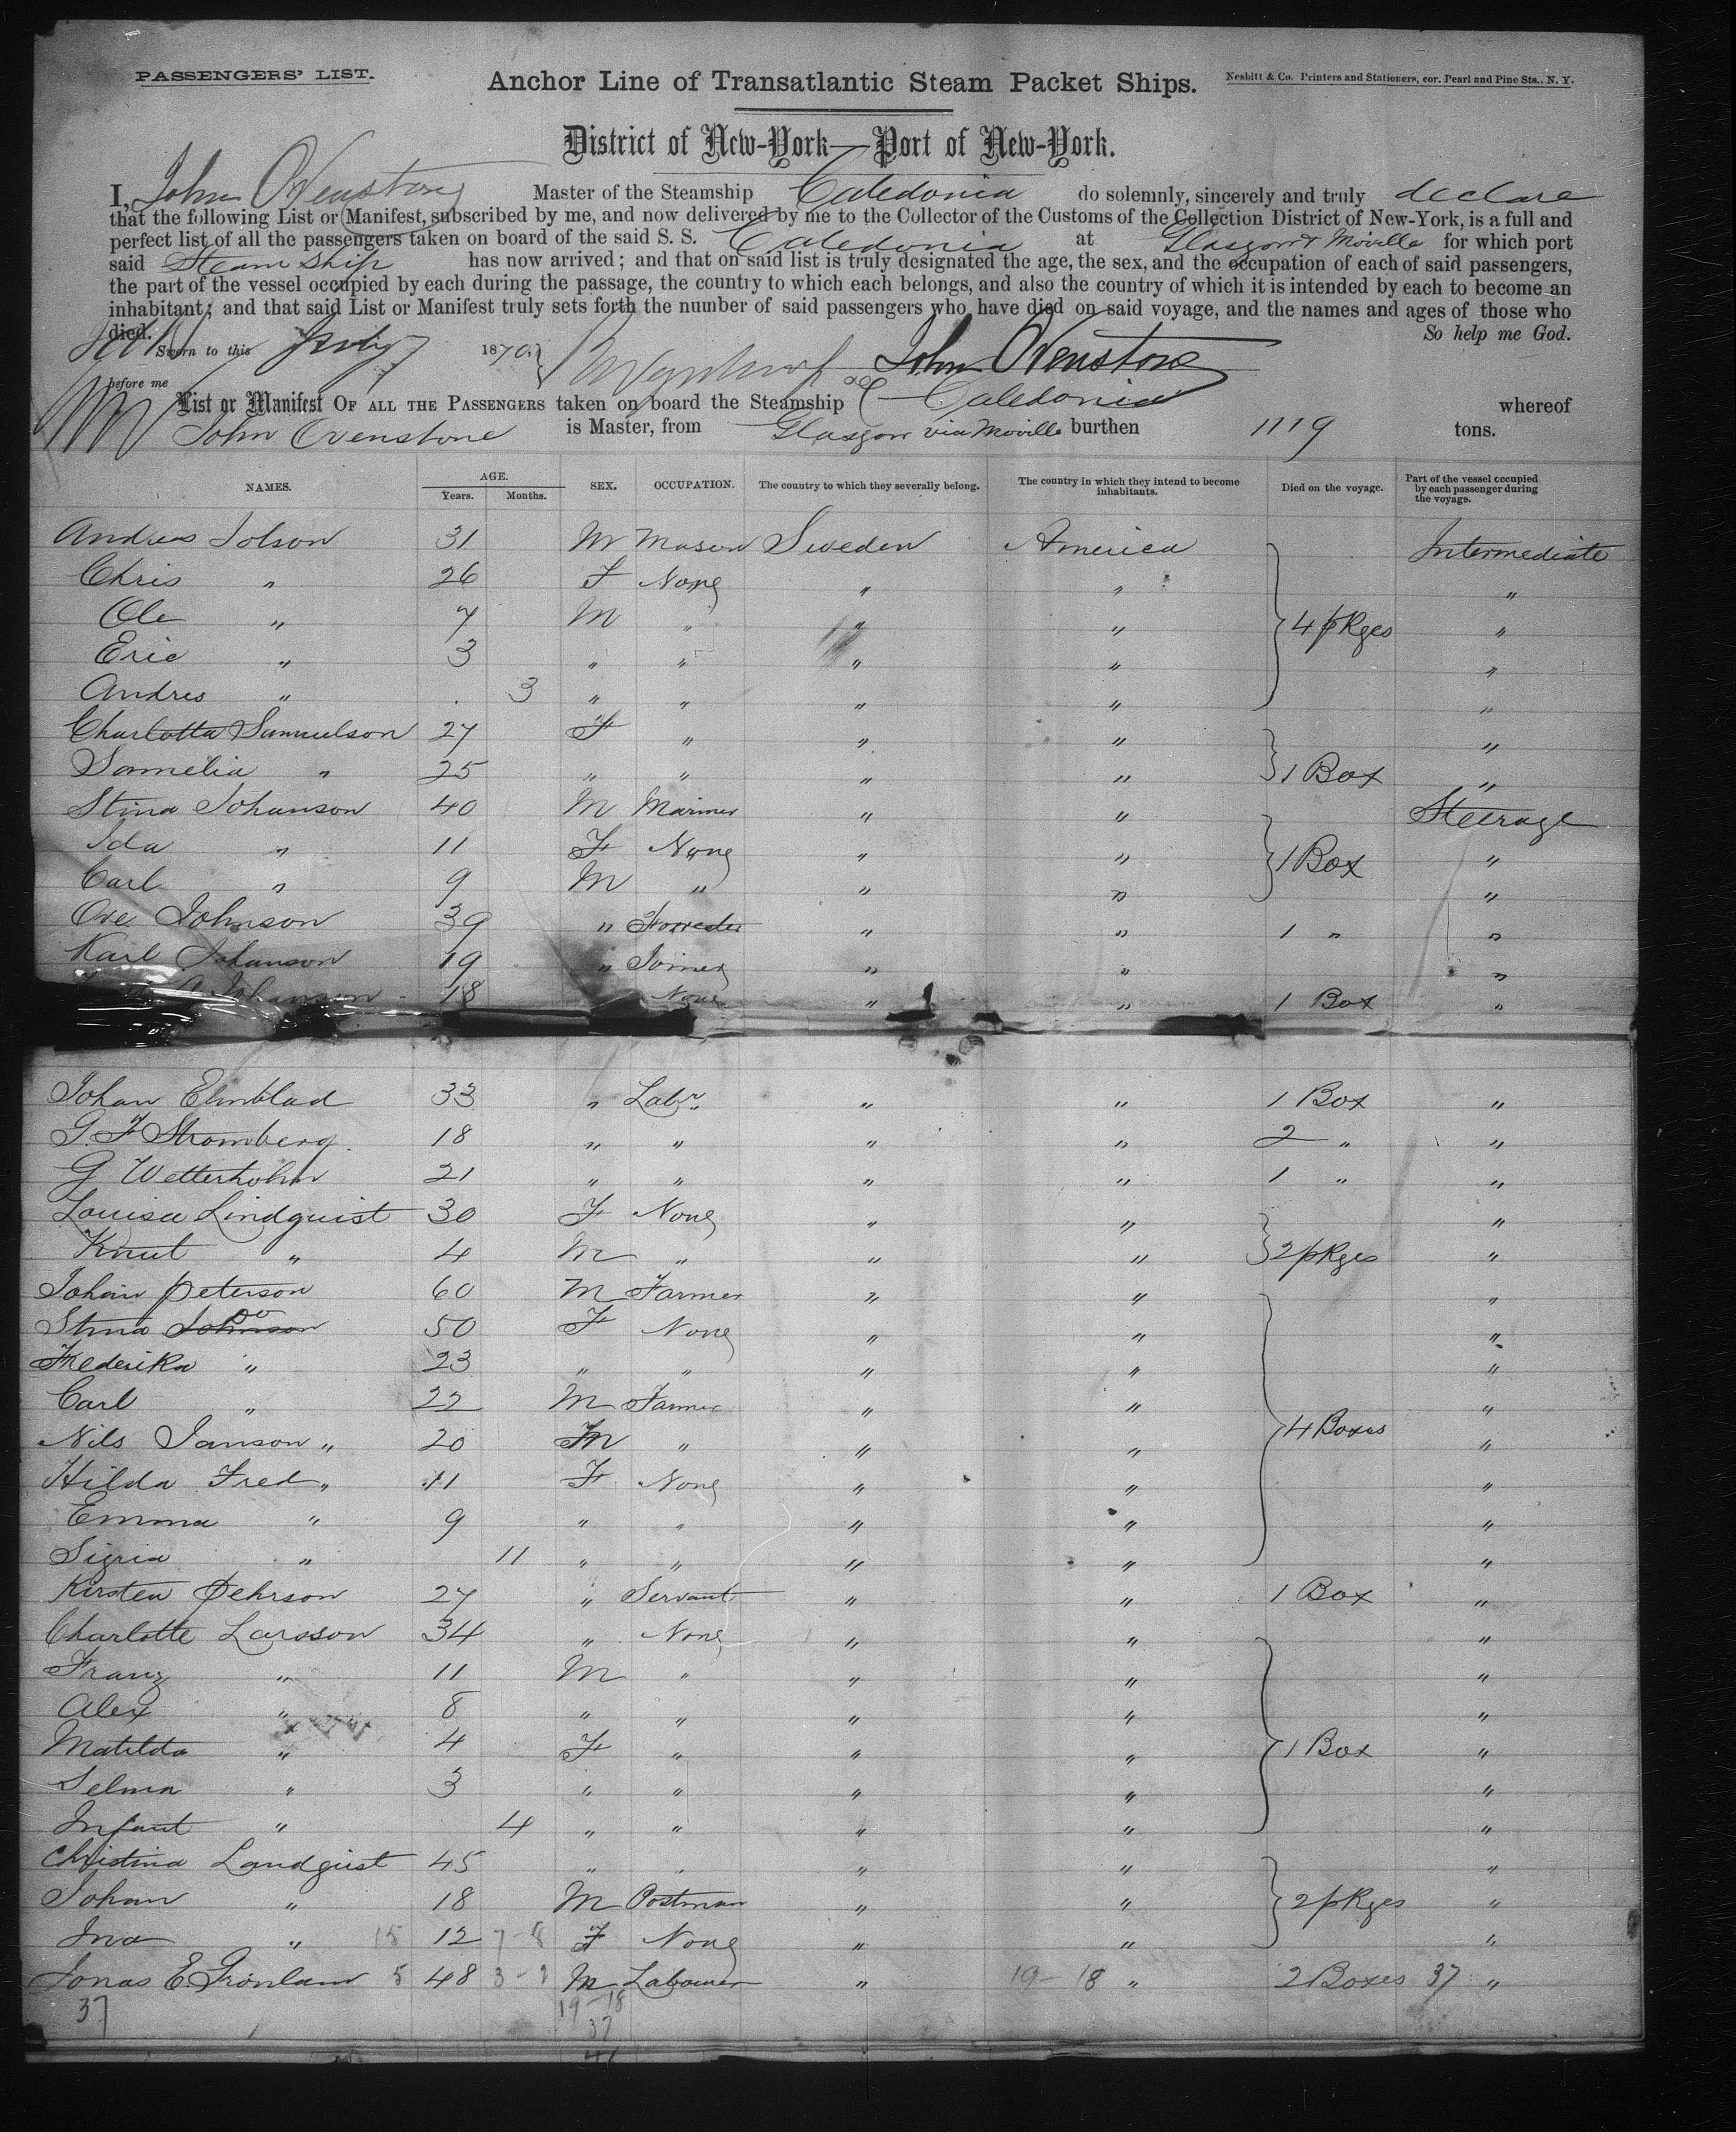 PASSENGERS' LIST.
Anchor Line of Transatlantic Steam Packet Ships.
Nesbitt & Co. Printers and Stationers, cor. Pearl and Pine Sts., N. Y.
District of New-York—Port of New-York.
I, John Ovenstone Master of the Steamship Caledonia do solemnly, sincerely and truly declare
that the following List or Manifest, subscribed by me, and now delivered by me to the Collector of the Customs of the Collection District of New-York, is a full and
perfect list of all the passengers taken on board of the said S. S. Caledonia at Glasgow & Moville for which port
said Steam Ship has now arrived; and that on said list is truly designated the age, the sex, and the occupation of each of said passengers,
the part of the vessel occupied by each during the passage, the country to which each belongs, and also the country of which it is intended by each to become an
inhabitant; and that said List or Manifest truly sets forth the number of said passengers who have died on said voyage, and the names and ages of those who
died. So help me God.
Sworn to this July 1870 John Ovenstone
before me
List or Manifest OF ALL THE PASSENGERS taken on board the Steamship Caledonia whereof
John Ovenstone is Master, from Glasgow via Moville burthen 1119 tons.
NAMES. AGE. Years. Months. SEX. OCCUPATION. The country to which they severally belong. The country in which they intend to become inhabitants. Died on the voyage. Part of the vessel occupied by each passenger during the voyage.
Andres Iolson 31 M Mason Sweden America Intermediate
Chris " 26 F None " " "
Ole " 7 M " " " 4 pkges "
Eric " 3 " " " " "
Andres " 3 " " " " "
Charlotta Samuelson 27 F " " " "
Samelia " 25 " " " " 1 Box "
Stina Johanson 40 M Mariner " " Steerage
Ida " 11 F None " " 1 Box "
Carl " 9 M " " " "
Ove Johnson 39 " Forrester " " 1 " "
Karl Johanson 19 " Joiner " " "
Johanson 18 None " " 1 Box "
Johan Elmblad 33 " Labr " " 1 Box "
G. F Stromberg 18 " " " " 2 " "
G Wetterholm 21 " " " " 1 " "
Louisa Lindquist 30 F None " " "
Knut " 4 M " " " 2 pkges "
Johan Peterson 60 M Farmer " " "
Stina Johnson Do 50 F None " " "
Frederika " 23 " " " " "
Carl " 22 M Farmer " " "
Nils Janson " 20 M " " " 4 Boxes "
Hilda Fred " 11 F None " " "
Emma " 9 " " " " "
Sigria " 11 " " " " "
Kirsten Pehrson 27 " Servant " " 1 Box "
Charlotte Larsson 34 " None " " "
Franz " 11 M " " " "
Alex " 8 " " " " "
Matilda " 4 F " " " 1 Box "
Selma " 3 " " " " "
Infant " 4 " " " " "
Christina Landgist 45 " " " " "
Johan " 18 M Postman " " 2 pkges "
Ina " 15 12 7-8 F None " " "
Jonas E. Gronlam 5 48 3-2 M Labourer " 19-18 " 2 Boxes 37 "
37 19-18
37